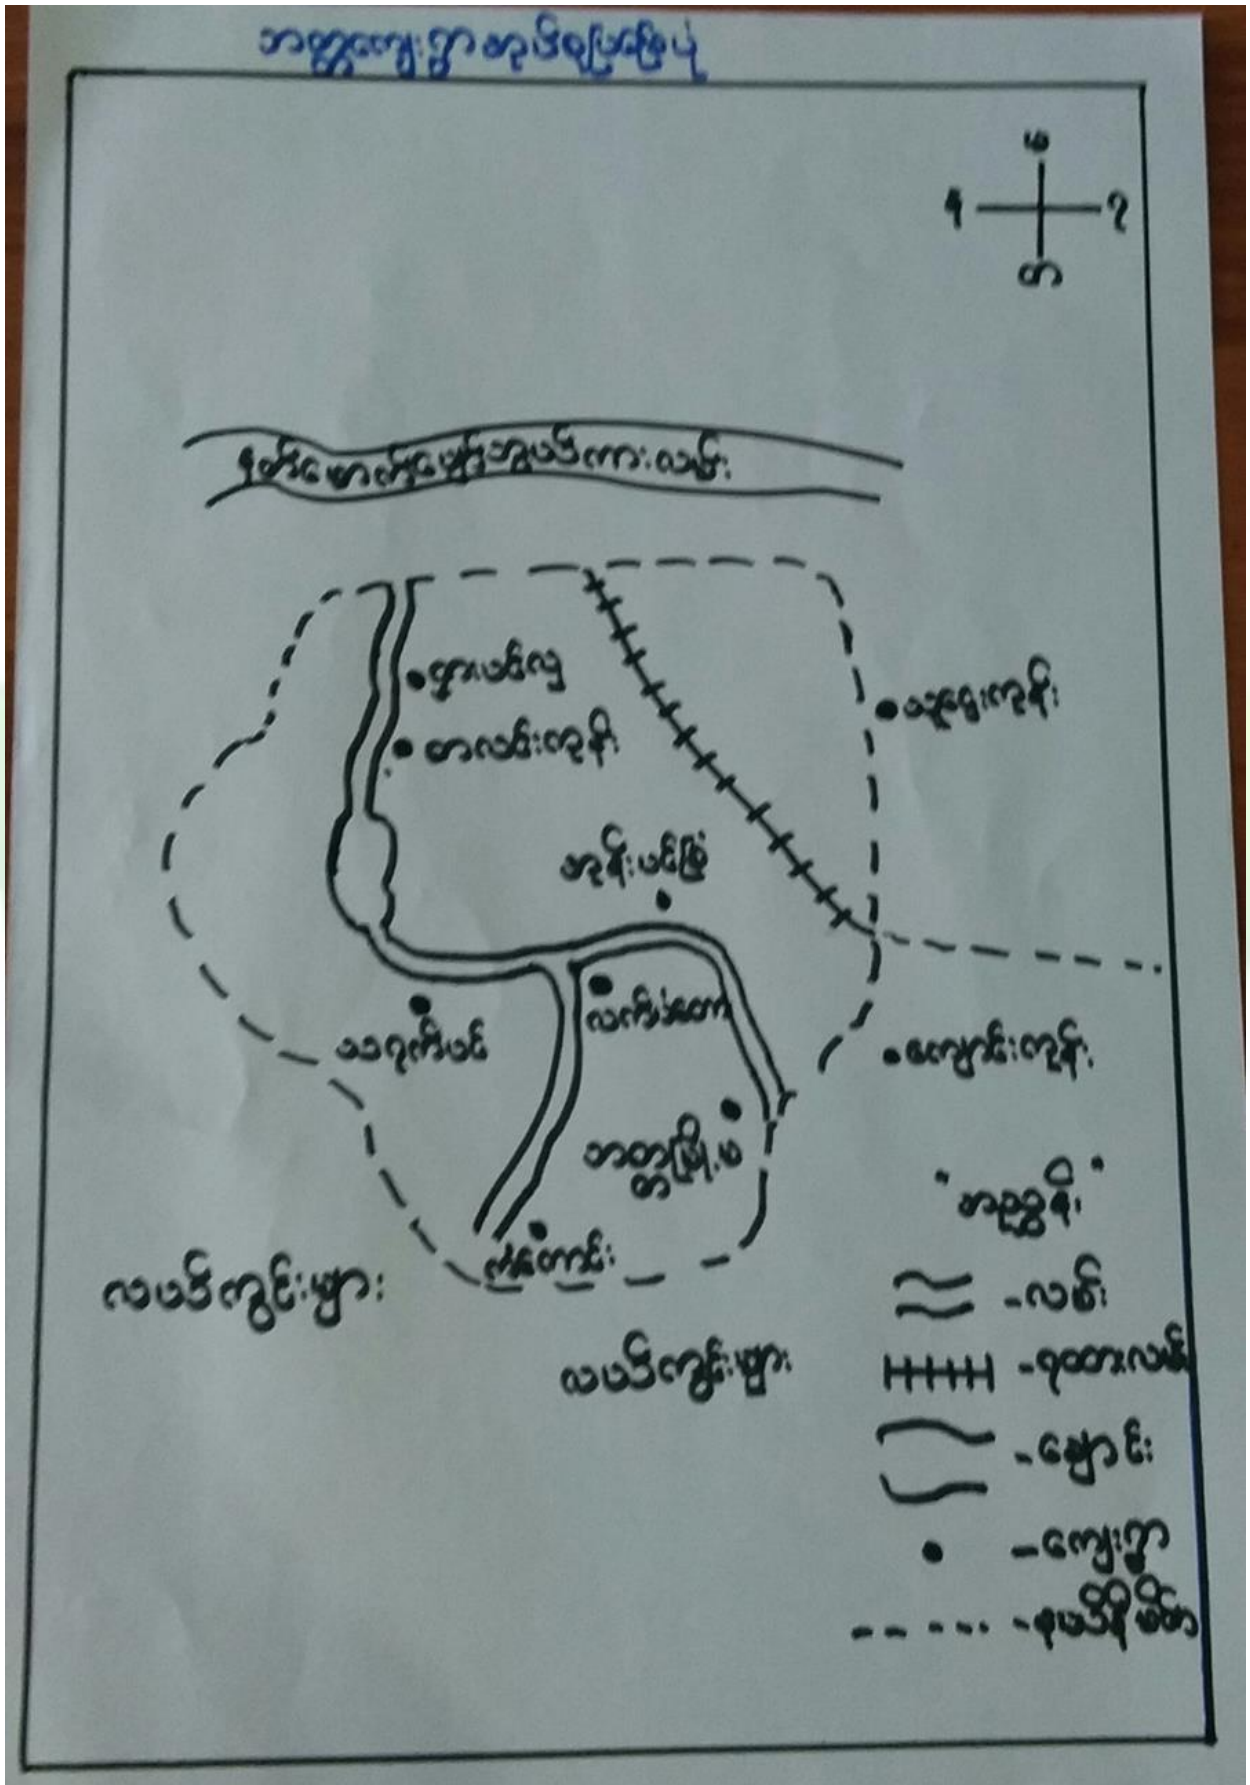 ဘတ္တကျေးရွာအုပ်စုပြမြေပုံ
မ
န
ရ
တ
နတ်မောက်မြို့ဘွယ်ကားလမ်း
ရှားပင်လှ
တလင်းကုန်း
သူဌေးကုန်း
အုန်းပင်ခြံ
လက်ပံတော
သရက်ပင်
ကျောင်းကုန်း
ဘတ္တမြို့မ
"အညွှန်း"
ကံတောင်း
လယ်ကွင်းများ
လယ်ကွင်းများ
-လမ်း
-ရထားလမ်း
-ချောင်း
-ကျေးရွာ
-နယ်နိမိတ်